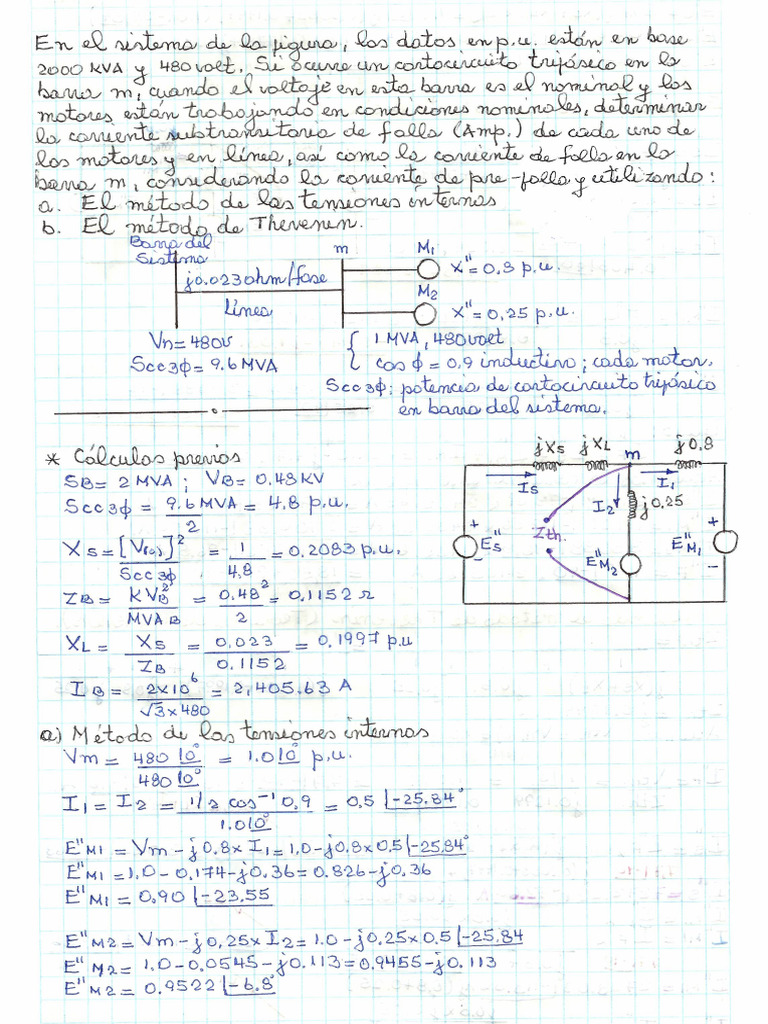 En el sistema de la figura, los datos en p.u. están en base
2000 KVA y 480 volt. Si ocurre un cortocircuito trifásico en la
barra m, cuando el voltaje en esta barra es el nominal y los
motores están trabajando en condiciones nominales, determinar
la corriente subtransitoria de falla (Amp.) de cada uno de
los motores y en línea, así como la corriente de falla en la
barra m, considerando la corriente de pre-falla y utilizando:
a. El método de las tensiones internas
b. El método de Thevenen.
Barra del
Sistema
m
M1
j0.023 ohm/fase
X" = 0,8 p.u.
M2
Línea
X" = 0,25 p.u.
Vn = 480v
Scc3ϕ = 9.6 MVA
{ 1 MVA, 480 volt
cos ϕ = 0.9 inductivo; cada motor.
Scc3ϕ: potencia de cortocircuito trifásico
en barra del sistema.
* Cálculos previos
SB = 2 MVA ; VB = 0.48 KV
Scc3ϕ = 9.6 MVA / 2 = 4,8 p.u.
XS = [V(0)]² / Scc3ϕ = 1 / 4,8 = 0,2083 p.u.
ZB = KVB² / MVAB = 0,48² / 2 = 0,1152 Ω
XL = XS / ZB = 0,023 / 0,1152 = 0,1997 p.u
IB = 2x10⁶ / √3 x 480 = 2,405.63 A
jXS jXL m j0,8
IS I2 I1
j0.25
Zth.
+ E"S -
E"M2
+ E"M1 -
a) Método de las tensiones internas
Vm = 480 |0° / 480 |0° = 1.0 |0° p.u.
I1 = I2 = 1/2 cos⁻¹ 0,9 / 1.0 |0° = 0.5 |-25.84°
E"M1 = Vm - j0.8 x I1 = 1.0 - j0.8 x 0,5 |-25,84°
E"M1 = 1.0 - 0.174 - j0.36 = 0.826 - j0.36
E"M1 = 0.90 |-23.55
E"M2 = Vm - j0,25 x I2 = 1.0 - j0.25 x 0.5 |-25.84
E"M2 = 1.0 - 0.0545 - j0.113 = 0.9455 - j0.113
E"M2 = 0.9522 |-6.8°